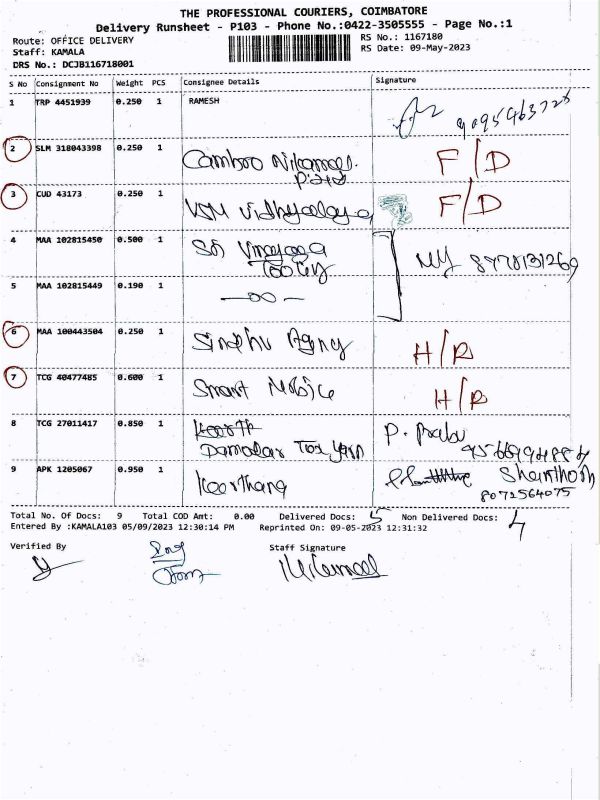 THE PROFESSIONAL COURIERS, COIMBATORE
Delivery Runsheet - P103 - Phone No.:0422-3505555 - Page No.:1
Route: OFFICE DELIVERY
RS No.: 1167180
Staff: KAMALA
RS Date: 09-May-2023
DRS No.: DCJB116718001
S No Consignment No Weight PCS Consignee Details Signature
1 TRP 4451939 0.250 1 RAMESH
2 SLM 318043398 0.250 1 F/D
3 CUD 43173 0.250 1 VSM Vidhyalaya F/D
4 MAA 102815450 0.500 1 Sri Vinayaga
5 MAA 102815449 0.190 1
6 MAA 100443504 0.250 1 Sindhu Agency H/R
7 TCG 40477485 0.600 1 Smart Mobile H/R
8 TCG 27011417 0.850 1 Damodar Tex yarn P. Prabu
9 APK 1205067 0.950 1 Keerthana Shanthosh
8072564075
Total No. Of Docs: 9 Total COD Amt: 0.00 Delivered Docs: 5 Non Delivered Docs: 4
Entered By :KAMALA103 05/09/2023 12:30:14 PM Reprinted On: 09-05-2023 12:31:32
Verified By Staff Signature